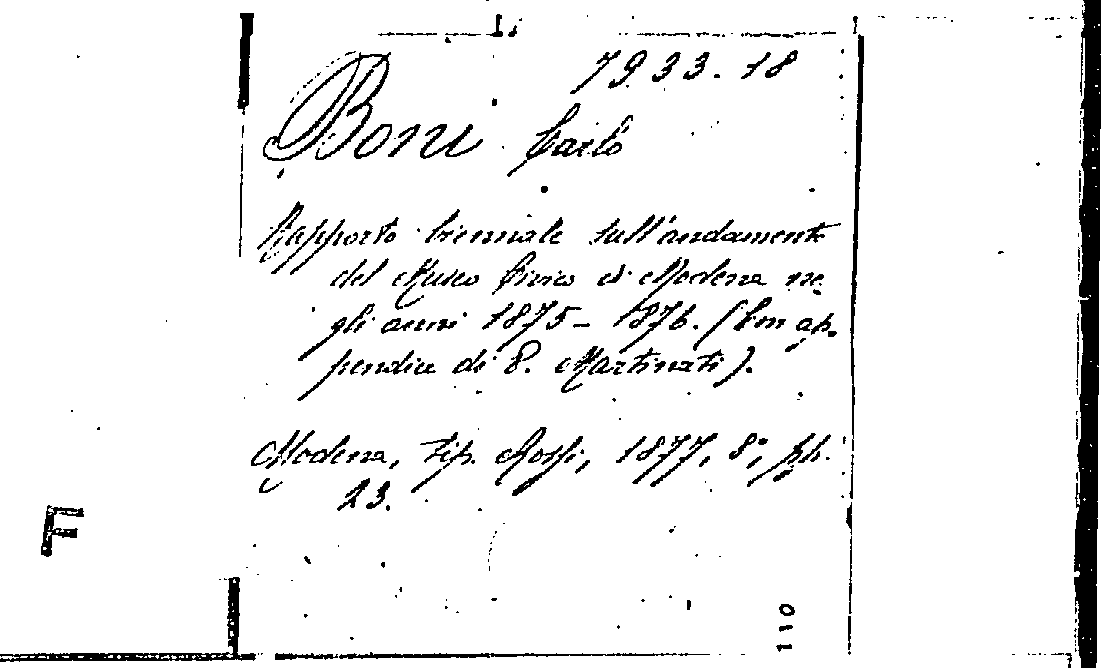 7933.18
Boni Carlo
Rapporto biennale sull'andamento
del Museo Civico di Modena ne-
gli anni 1875-1876. (Con ap-
pendice di P. Martinati).
Modena, tip. Rossi, 1877, 8°, pp.
23.
F
110